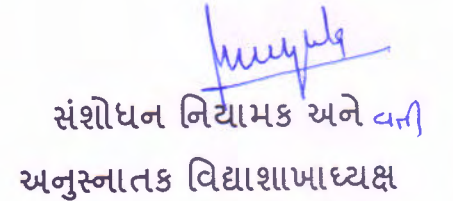 સંશોધન નિયામક અને વતી
અનુસ્નાતક વિદ્યાશાખાધ્યક્ષ